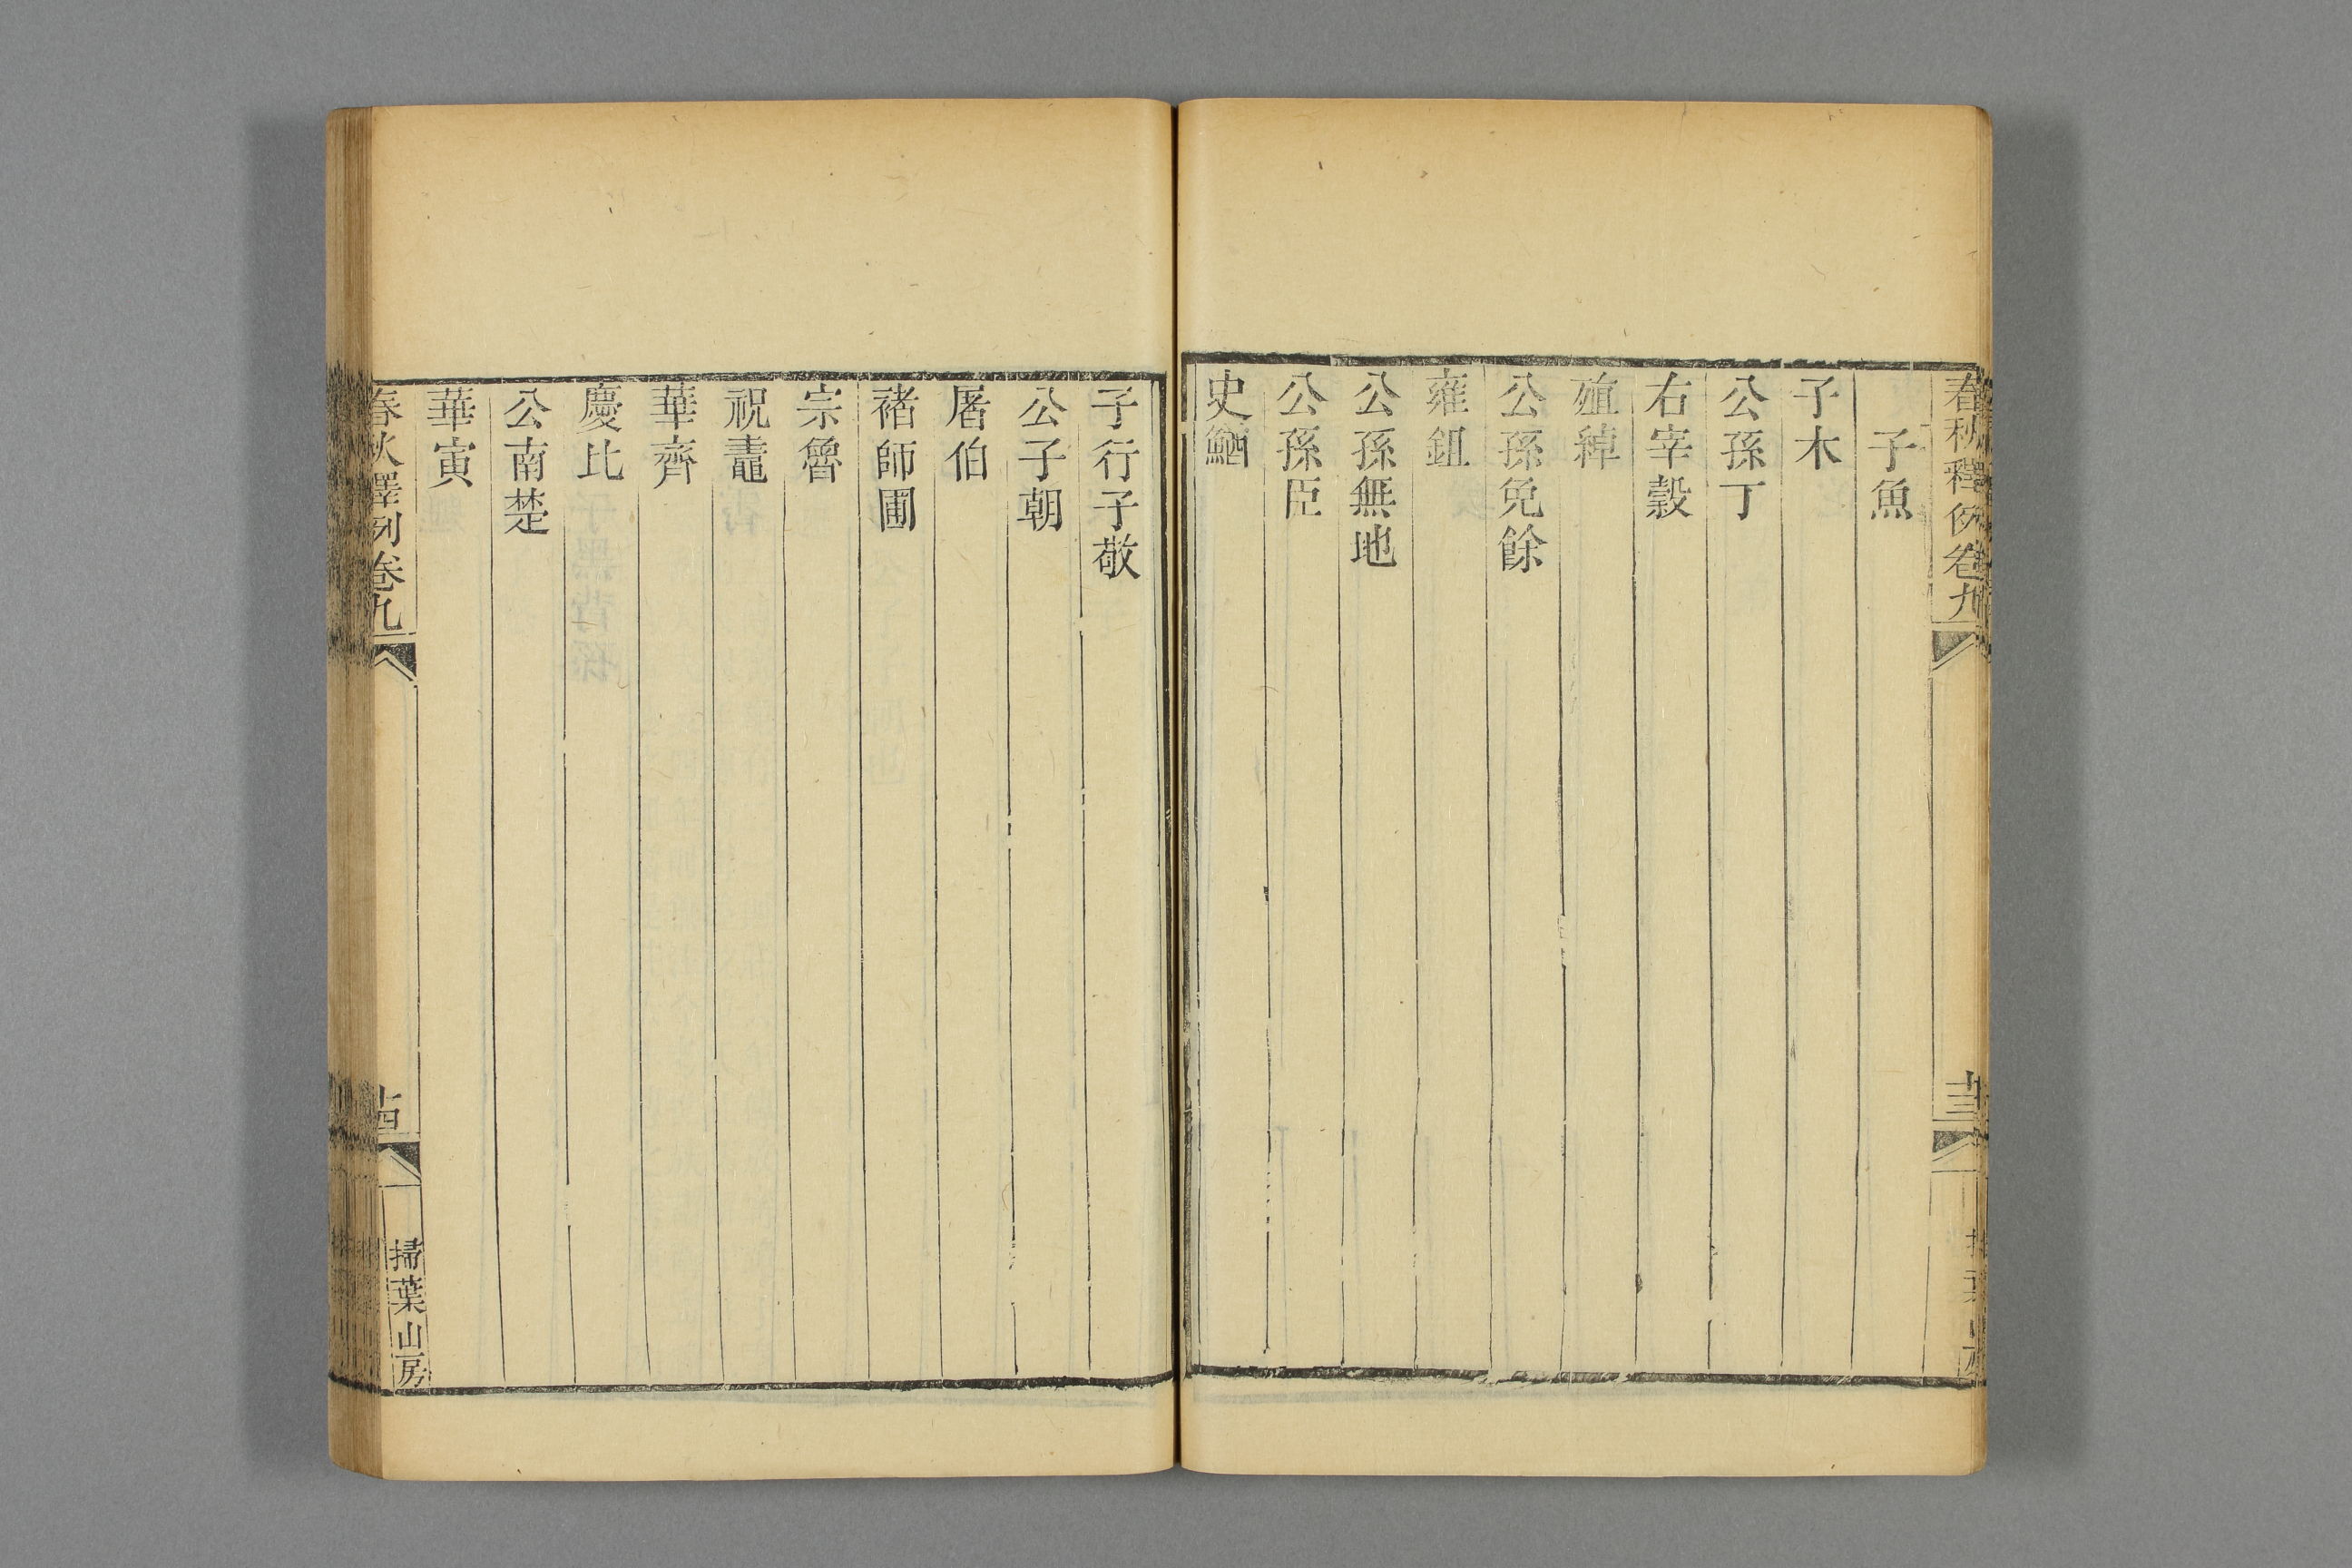 春秋釋例卷九
廿三
子魚
子木
公孫丁
右宰榖
殖綽
公孫免餘
雍鉏
公孫無地
公孫臣
史鰌
子行子敬
公子朝
屠伯
褚師圃
宗魯
祝鼃
華齊
慶比
公南楚
華寅
春秋釋例卷九
掃葉山房